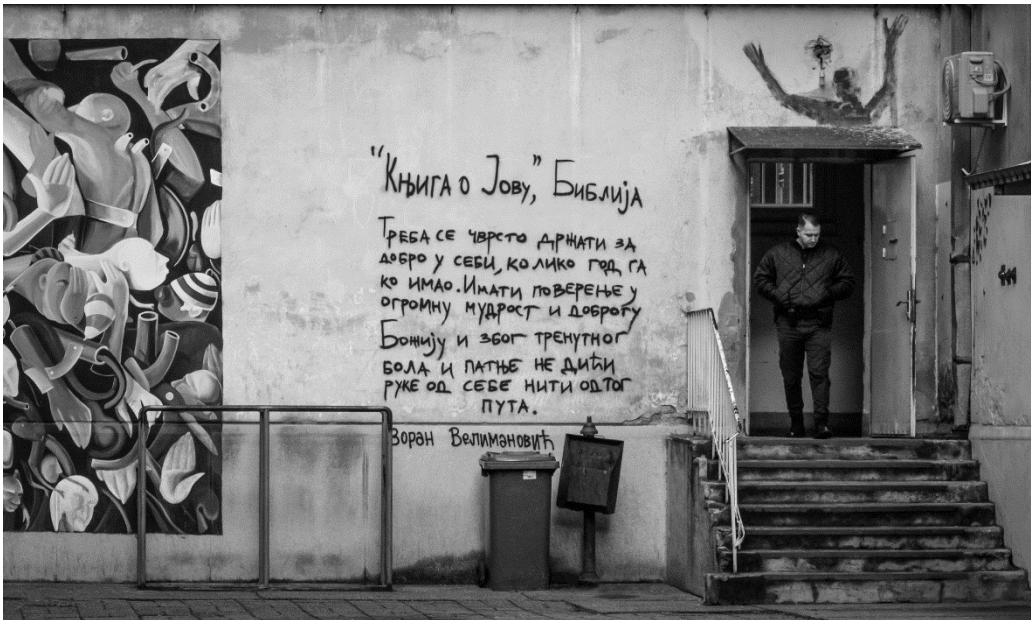 "Књига о Јову," Библија
Треба се чврсто држати за
добро у себи, колико год га
ко имао. Имати поверење у
огромну мудрост и доброту
Божију и због тренутног
бола и патње не дићи
руке од себе нити од тог
пута.
Зоран Велимановић